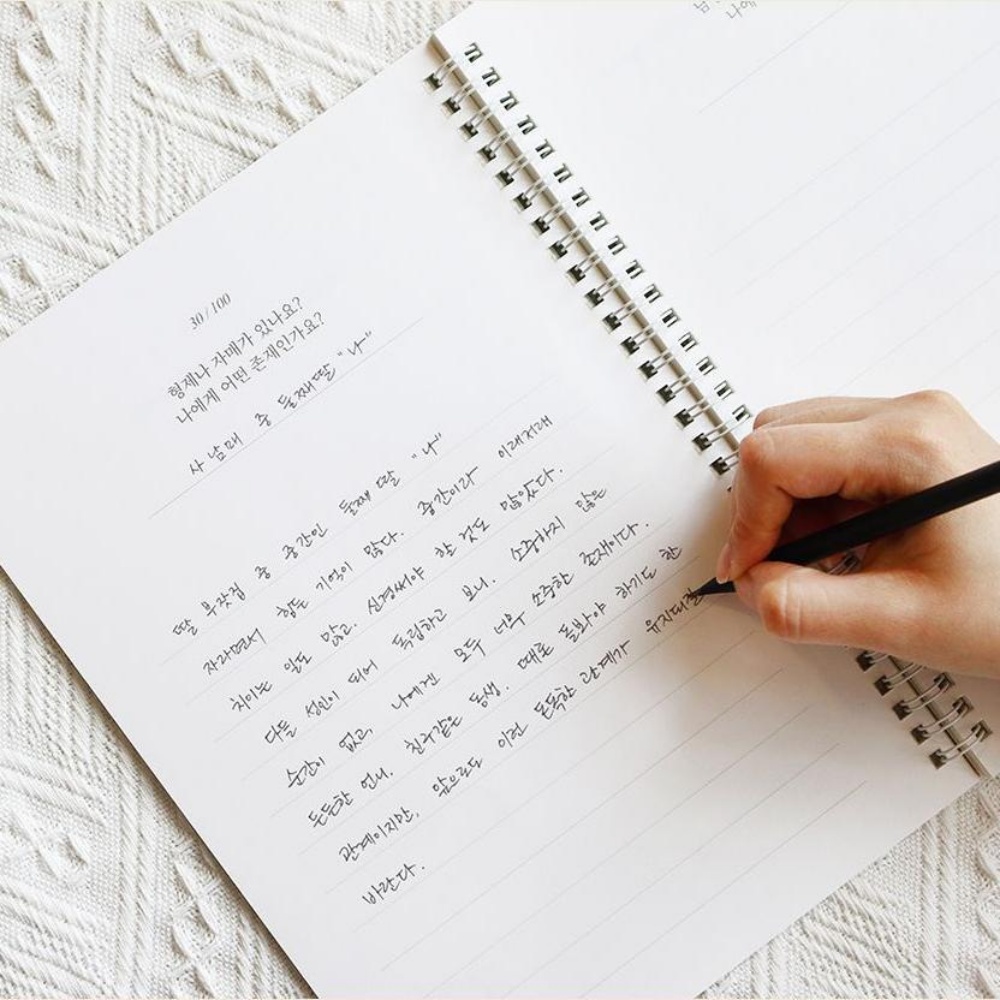 30/100
형제나 자매가 있나요?
나에게 어떤 존재인가요?
사남매 중 둘째딸 "나"
딸 부잣집 중 중간인 둘째 딸 "나"
자라면서 힘든 기억이 많다. 중간이라 이래저래
치이는 일도 많고. 신경써야 할 것도 많았다.
다들 성인이 되어 독립하고 보니. 소중하지 않은
순간이 없고, 나에겐 모두 너무 소중한 존재이다.
든든한 언니. 친구같은 동생. 때로 돌봐야 하기도 한
관계이지만, 앞으로도 이런 돈독한 관계가 유지되길
바란다.
나에